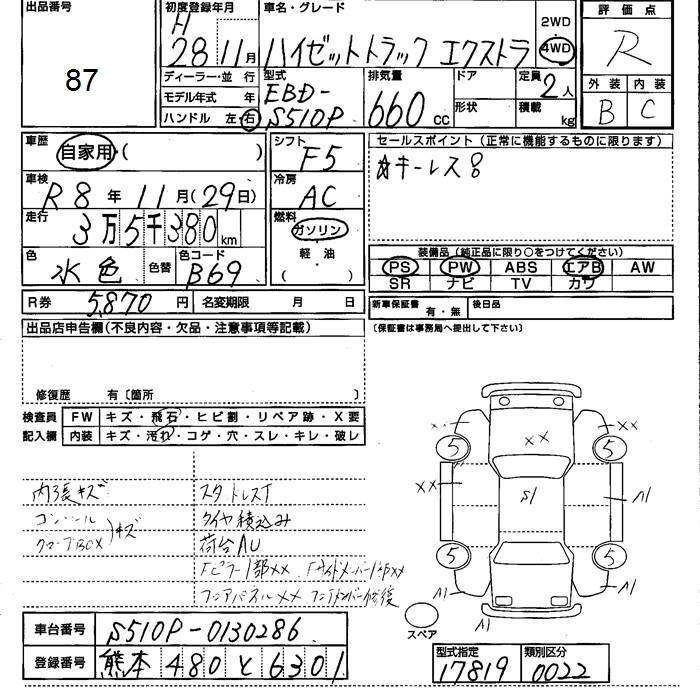 出品番号 初度登録年月 車名・グレード 評価点
87
H 28 11月 ハイゼットトラック エクストラ 2WD 4WD R
ディーラー・並行 型式 排気量 ドア 定員 外装 内装
モデル年式 年 EBD- 660cc 形状 2人 積載 kg B C
ハンドル 左・右 S510P
車歴 シフト セールスポイント(正常に機能するものに限ります)
自家用( ) F5 ☆キーレス
車検 冷房
R8年11月(29日) AC
走行 燃料
3万5千380km ガソリン
色 色コード 軽油 装備品(純正品に限り○をつけてください)
水色 色替 B69 ( ) PS PW ABS エアB AW
SR ナビ TV カワ
R券 5,870円 名変期限 月 日 新車保証書 有・無 後日品
出品店申告欄(不良内容・欠品・注意事項等記載) (保証書は事務局へ提出して下さい)
修復歴 有〔箇所 〕
検査員 FW キズ・飛石・ヒビ割・リペア跡・X要
記入欄 内装 キズ・汚れ・コゲ・穴・スレ・キレ・破レ
内張キズ スタッドレスT
コンソール タイヤ積込み
グローブBOX キズ 荷台AU
Fピラー1部XX Fサイドメンバー1部XX
XX
XX 5 5
XX S1 A1
5 5
A1 A1
A1
スペア
車台番号 S510P-0130286
登録番号 熊本 480 と 6301
型式指定 類別区分
17819 0022